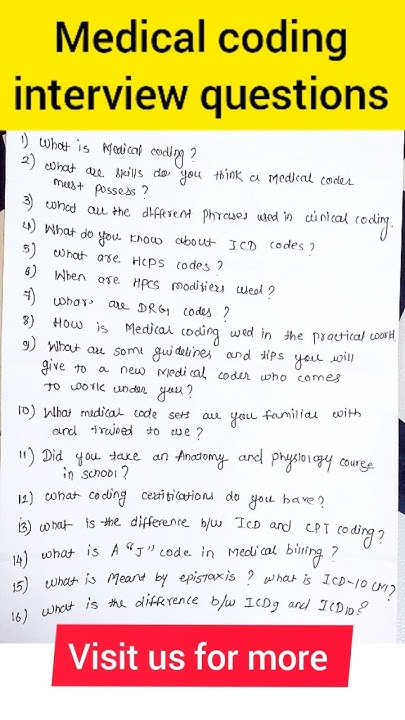 Medical coding
interview questions
1) What is Medical coding?
2) What are skills do you think a Medical coder
must possess?
3) What are the different phrases used in clinical coding.
4) What do you know about ICD codes?
5) What are HCPS codes?
6) When are HPCS modifiers used?
7) What are DRG codes?
8) How is Medical coding used in the practical world
9) What are some guidelines and tips you will
give to a new Medical coder who comes
to work under you?
10) What medical code sets are you familiar with
and trained to use?
11) Did you take an Anatomy and physiology course
in school?
12) What coding certifications do you have?
13) What is the difference b/w ICD and CPT coding?
14) What is A "J" code in Medical billing?
15) What is Meant by epistaxis? What is ICD-10 CM?
16) What is the difference b/w ICD9 and ICD10?
Visit us for more